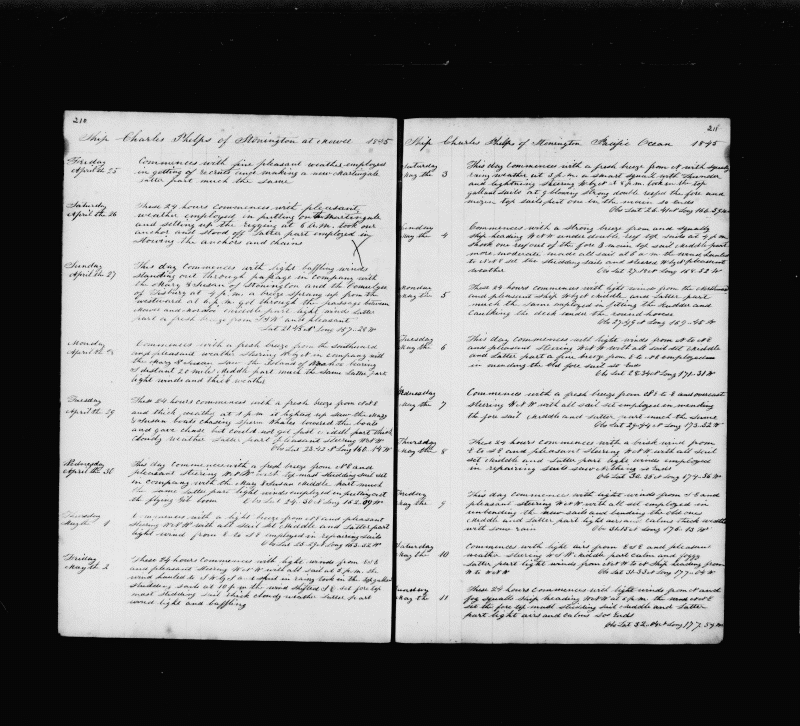 210
Ship Charles Phelps of Stonington at Mowee 1845
Friday Commences with fine pleasant weather employed
April the 25 in getting of recruits and making a new Martingale
latter part much the same
Saturday These 24 hours commences with pleasant
April the 26 weather employed in putting on the Martingale
and setting up the rigging at 6 A.M. took our
anchor and stood off Latter part employed in
Stowing the anchors and chains
Sunday This day commences with light baffling winds
April the 27 standing out through passage in company with
the Mary & Susan of Stonington and the
of Tisbury at 4 p.m. a breeze sprung up from the
westward at 6 p.m. got through the passage between
Mowee and Middle part light winds Latter
part a fresh breeze from and pleasant
Lat 21.43 N Long 157.28 W
Monday Commences with a fresh breeze from the Southward
April the 28 and pleasant weather Steering W by N in company with
the Mary & Susan saw the Island of bearing
distant 20 miles Middle part much the same Latter part
light winds and thick weather
Tuesday These 24 hours commences with a fresh breeze from
April the 29 and thick weather at 3 p.m. it lighted up saw the Mary
& Susan boats chasing Sperm Whales lowered the boats
and gave chase but could not get fast Middle part thick
cloudy weather Latter part pleasant steering WNW
Obs Lat 23.43 N Long 160.14 W
Wednesday This day commences with a fresh breeze from and
April the 30 pleasant steering WNW with top mast studding sail set
in company with the Mary & Susan Middle part much
the same Latter part light winds employed in putting out
the flying Gib boom Obs Lat 24.30 N Long 162.09 W
Thursday Commences with a light breeze from and pleasant
May the 1 Steering WNW with all sail set Middle and Latter part
light wind from E to SE employed in repairing sails
Obs Lat 25.27 N Long 163.52 W
Friday These 24 hours commences with light winds from
May the 2 and pleasant Steering WNW with all sail at 8 p.m. the
wind hauled to and set in rainy took in the top gallant
studding sails at 10 p.m. the wind shifted set fore top
mast studding sail thick cloudy weather Latter part
wind light and baffling
211
Ship Charles Phelps of Stonington Pacific Ocean 1845
Saturday This day commences with a fresh breeze from N with squally
May the 3 rainy weather at 3 p.m. a smart squall with thunder
and lightning Steering W by N at 8 p.m. took in the top
gallant sails at 9 blowing strong double reefed the fore and
mizen top sails put one in the main so ends
Obs Lat 26.41 N Long 166.39 W
Sunday Commences with a strong breeze from and squally
May the 4 Ship heading WNW under double reef top sails at 9 p.m.
shook one reef out of the fore & main top sail Middle part
more moderate made all sail at 8 A.M. the wind hauled
to NNE set the studding sails and steered W by N pleasant
weather Obs Lat 27.18 N Long 168.52 W
Monday These 24 hours commences with light winds from the Northward
May the 5 and pleasant ship W by N Middle and Latter part
much the same employed in fitting the Rudder and
Caulking the deck under the round house
Obs 27.49 N Long 169.45 W
Tuesday This day Commences with light winds from N to NE
May the 6 and pleasant steering WNW with all sail set Middle
and Latter part a fine breeze from E to NE employed
in mending the old fore sail so Ends
Obs Lat 28.34 N Long 171.31 W
Wednesday Commences with a fresh breeze from NE to E and overcast
May the 7 steering WNW with all sail set employed in mending
the fore sail Middle and Latter part much the same
Obs Lat 29.44 N Long 173.32 W
Thursday These 24 hours commences with a brisk wind from
May the 8 E to SE and pleasant Steering WNW with all sail
set Middle and Latter part light winds employed
in repairing sails saw Nothing so ends
Obs Lat 30.35 N Long 174.36 W
Friday This day commences with light winds from SE and
May the 9 pleasant steering WNW with all set employed in
unbending the New sails and bending the old ones
Middle and Latter part light airs and calms thick weather
with some rain Obs 31.15 N Long 176.13 W
Saturday Commences with light airs from ESE and pleasant
May the 10 weather steering WNW Middle part calm and foggy
Latter part light winds from NW to N Ship heading from
W to WNW Obs Lat 31.33 N Long 177.04 W
Sunday These 24 hours Commences with light winds from N and
May the 11 fog squalls Ship heading WNW at 4 p.m. the wind NNE
set the fore top mast studding sail Middle and Latter
part light airs and calms So Ends
Obs Lat 32. N Long 177.59 W